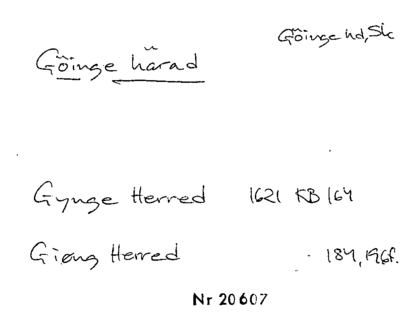 Göinge hd, Sk
Göinge härad
Gynge Herred 1621 KB 164
Giøng Herred - 184, 196f.
Nr 20607